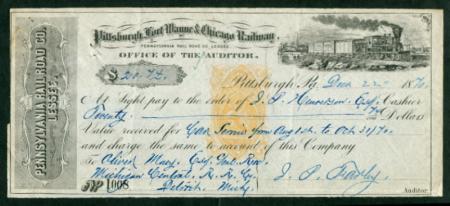 Pittsburgh, Fort Wayne & Chicago Railway
PENNSYLVANIA RAIL ROAD CO. LESSEE
OFFICE OF THE AUDITOR.
PENNSYLVANIA RAIL ROAD CO. LESSEE.
$ 20.74
Pittsburgh, Pa. 22 1870
At Sight pay to the order of Cashier
Twenty Dollars
Value received for Car Service from Aug 1st. to Oct 31/70
and charge the same to account of this Company
To Oliver Macy, Esq.
Michigan Central R. R. Co.
No. 1008 Detroit, Mich.
Auditor